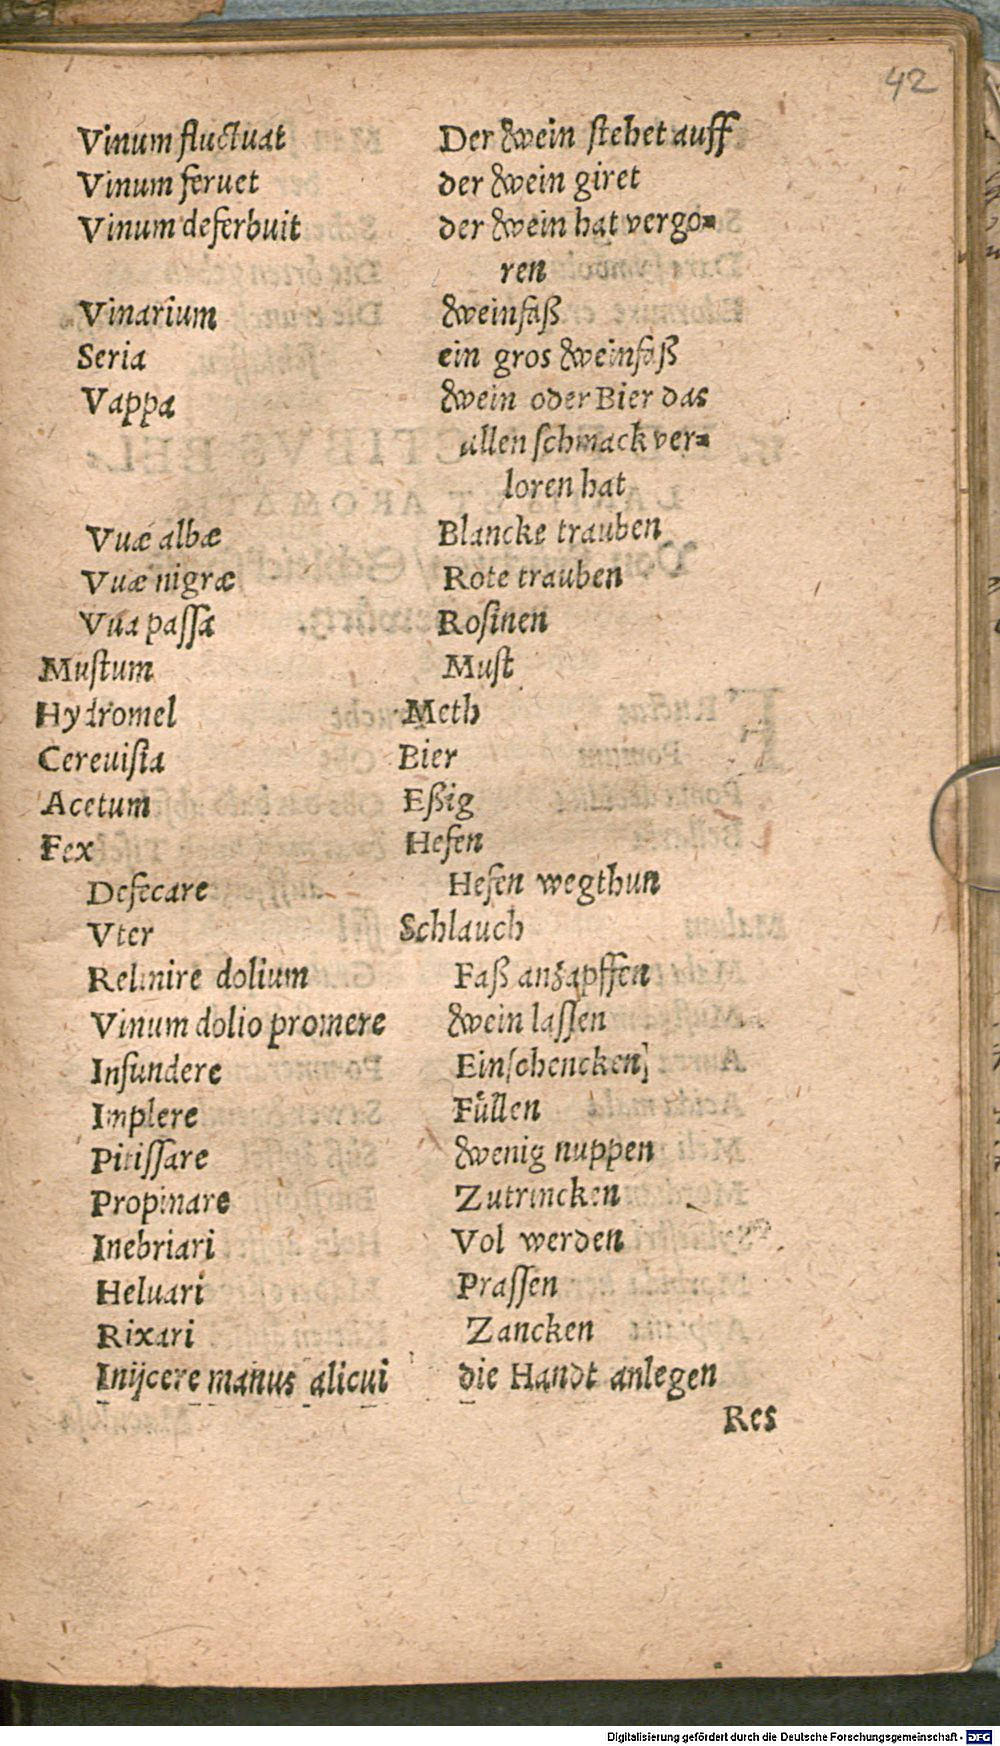 42
Vinum fluctuat Der wein stehet auff
Vinum feruet der wein giret
Vinum deferbuit der wein hat vergo=
ren
Vinarium weinfaß
Seria ein gros weinfaß
Vappa wein oder Bier das
allen schmack ver=
loren hat
Vuæ albæ Blancke trauben
Vuæ nigræ Rote trauben
Vua passa Rosinen
Mustum Must
Hydromel Meth
Cereuisia Bier
Acetum Eßig
Fex Hefen
Defecare Hefen wegthun
Vter Schlauch
Relinire dolium Faß anzapffen
Vinum dolio promere wein lassen
Infundere Einschencken
Implere Füllen
Pitissare wenig nuppen
Propinare Zutrincken
Inebriari Vol werden
Heluari Prassen
Rixari Zancken
Inijcere manus alicui die Handt anlegen
Res
Digitalisierung gefördert durch die Deutsche Forschungsgemeinschaft - DFG